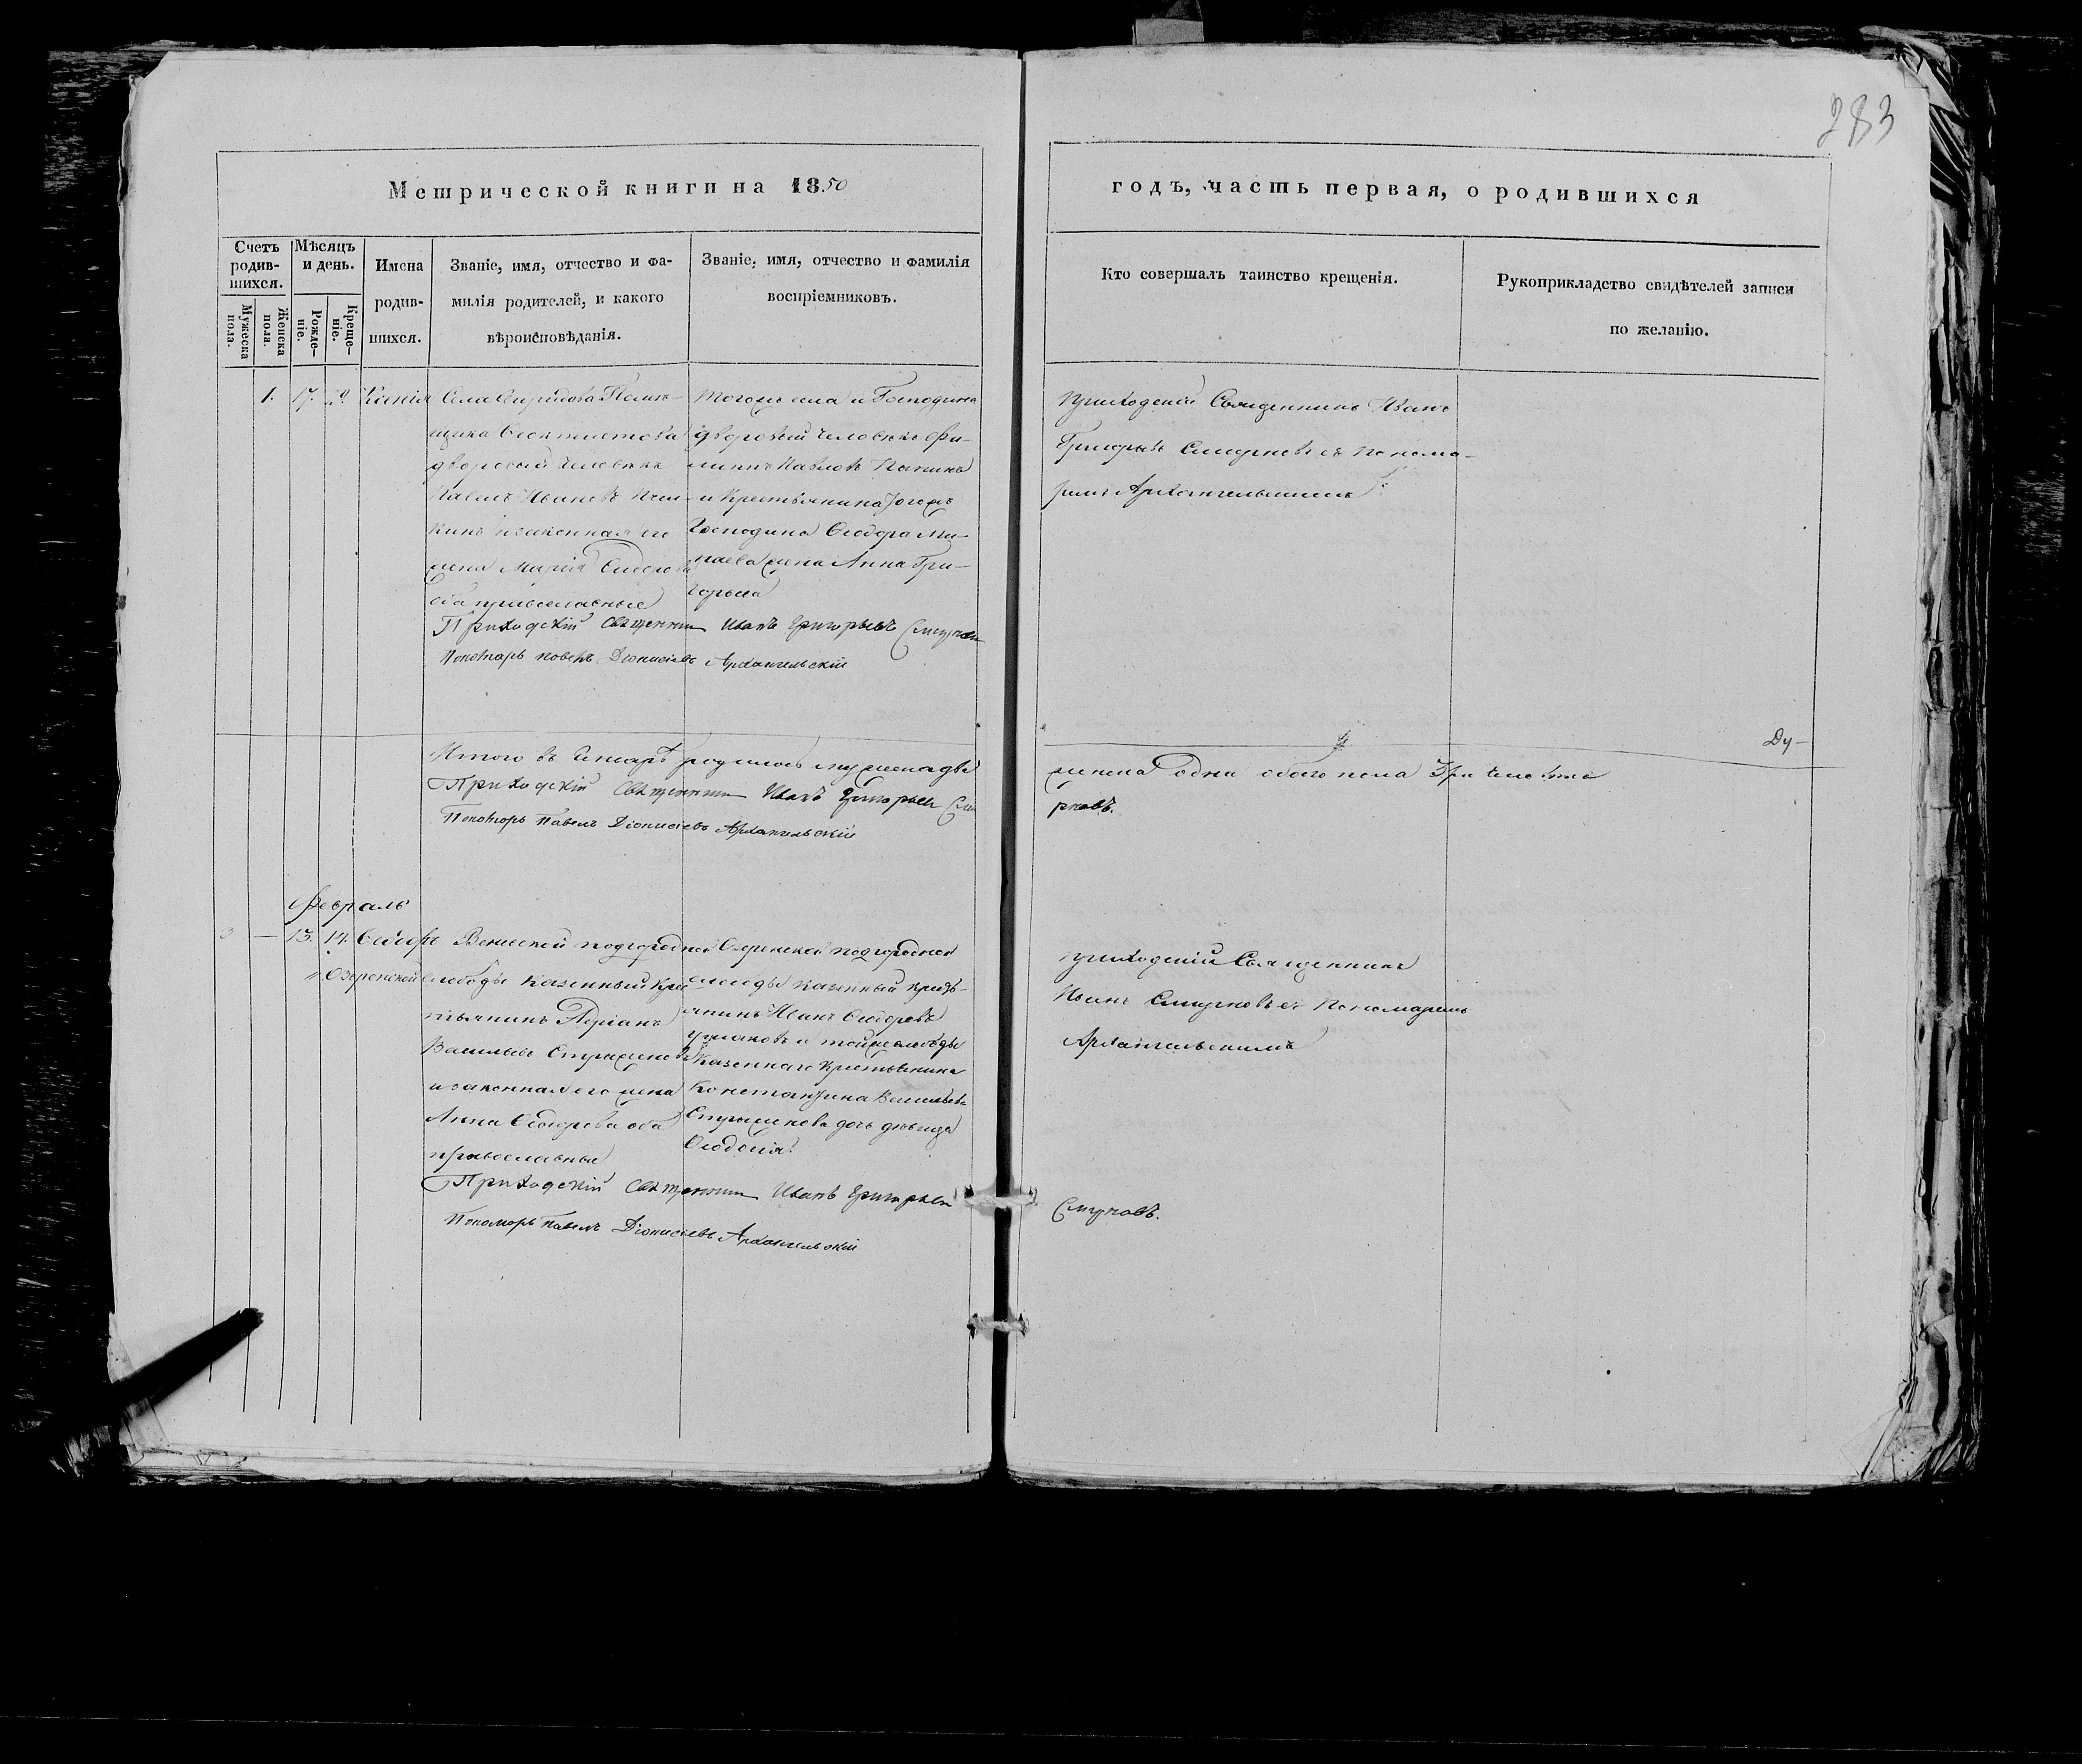 283
Метрической книги на 1850
годъ, часть первая, о родившихся
Счетъ родив-шихся.
Мужеска пола.
Женска пола.
Мѣсяцъ и день.
Рожде-ніе.
Креще-ніе.
Имена
родив-
шихся.
Званіе, имя, отчество и фа-
милія родителей, и какого
вѣроисповѣданія.
Званіе, имя, отчество и фамилія
воспріемниковъ.
Кто совершалъ таинство крещенія.
Рукоприкладство свидѣтелей записи
по желанію.
1. 17. Ксенія
Села Спиридова Помѣ-
щика
дворовый человѣкъ
Павелъ Ивановъ
и законная его
жена Марія
оба православные
Тогоже села и Господина
дворовый человѣкъ Фи-
липпъ Павловъ
и Крестьянина тогожъ
Господина Ѳеодора Ми-
наева жена Анна Гри-
горьева
Приходскій Священникъ Иванъ
Григорьевъ Смирновъ съ Понома-
ремъ Архангельскимъ
Приходскій Священникъ Иванъ Григорьевъ Смирновъ
Пономарь Павелъ Діонисіевъ Архангельскій
Итого въ Генварѣ родилось мужеска два
женска одна обоего пола три человѣка
Ду-
Приходскій Священникъ Иванъ Григорьевъ Сми
рновъ.
Пономарь Павелъ Діонисіевъ Архангельскій
Февраль
3 — 13. 14. Ѳеодоръ
Веневской подгородной
Озеренской слободы казенный кре
стьянинъ
Васильевъ Стрыженовъ
и законная его жена
Анна Ѳеодорова оба
православные
Озеренской подгородной
слободы казенный кресть-
янинъ Иванъ Ѳеодоровъ
и тойже слободы
казеннаго крестьянина
Константина Васильева
Стрыженова дочь дѣвица
Ѳеодосія.
Приходскій Священникъ
Иванъ Смирновъ съ Пономаремъ
Архангельскимъ
Приходскій Священникъ Иванъ Григорьевъ
Смирновъ.
Пономарь Павелъ Діонисіевъ Архангельскій